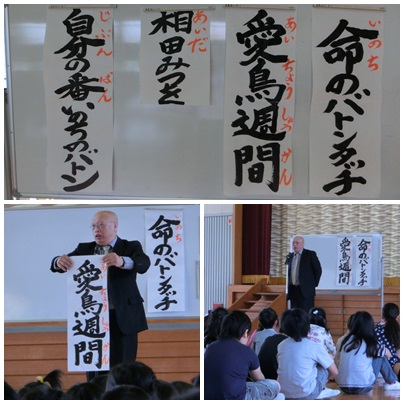 いのち
命のバトンタッチ
あいちょうしゅうかん
愛鳥週間
あいだ
相田みつを
じぶん ばん
自分の番いのちのバトン
命のバトンタッチ
愛鳥週間
命のバトンタッチ
愛鳥週間